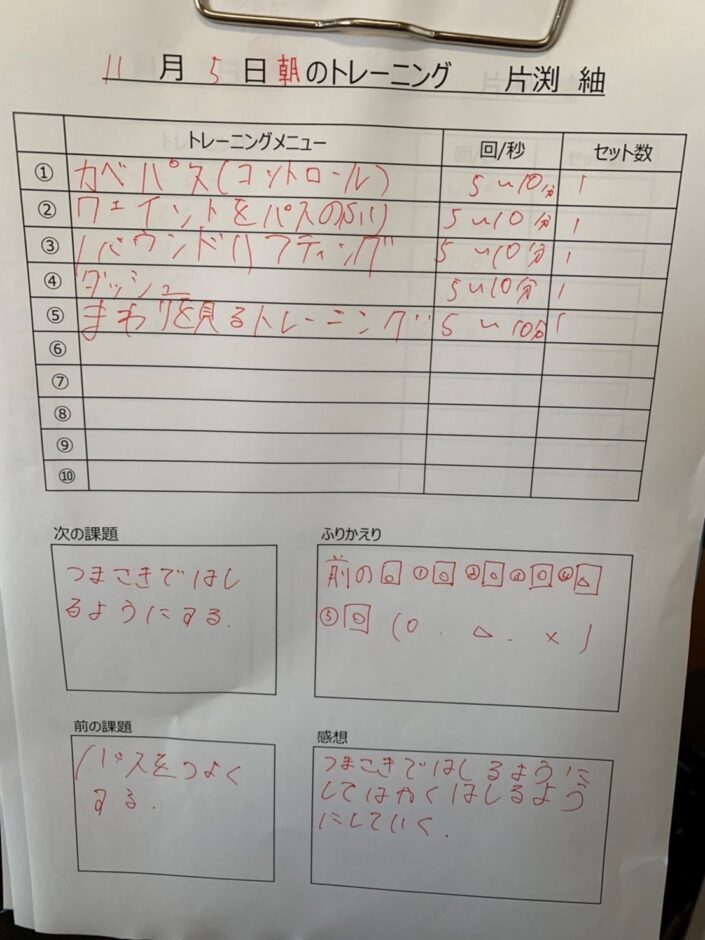 11月5日朝のトレーニング 片渕 紬
トレーニングメニュー 回/秒 セット数
① カベパス(コントロール) 5〜10分 1
② ウェイントをパスのふり 5〜10分 1
③ リバウンドリフティング 5〜10分 1
④ ダッシュー 5〜10分 1
⑤ まわりを見るトレーニング 5〜10分 1
⑥
⑦
⑧
⑨
⑩
次の課題
つまさきではし
るようにする.
ふりかえり
前の○ ①○ ②○ ③○ ④△
⑤○ (○. △. ×)
前の課題
パスをつよく
する.
感想
つまさきではしるように
してはやくはしるよう
にしていく.